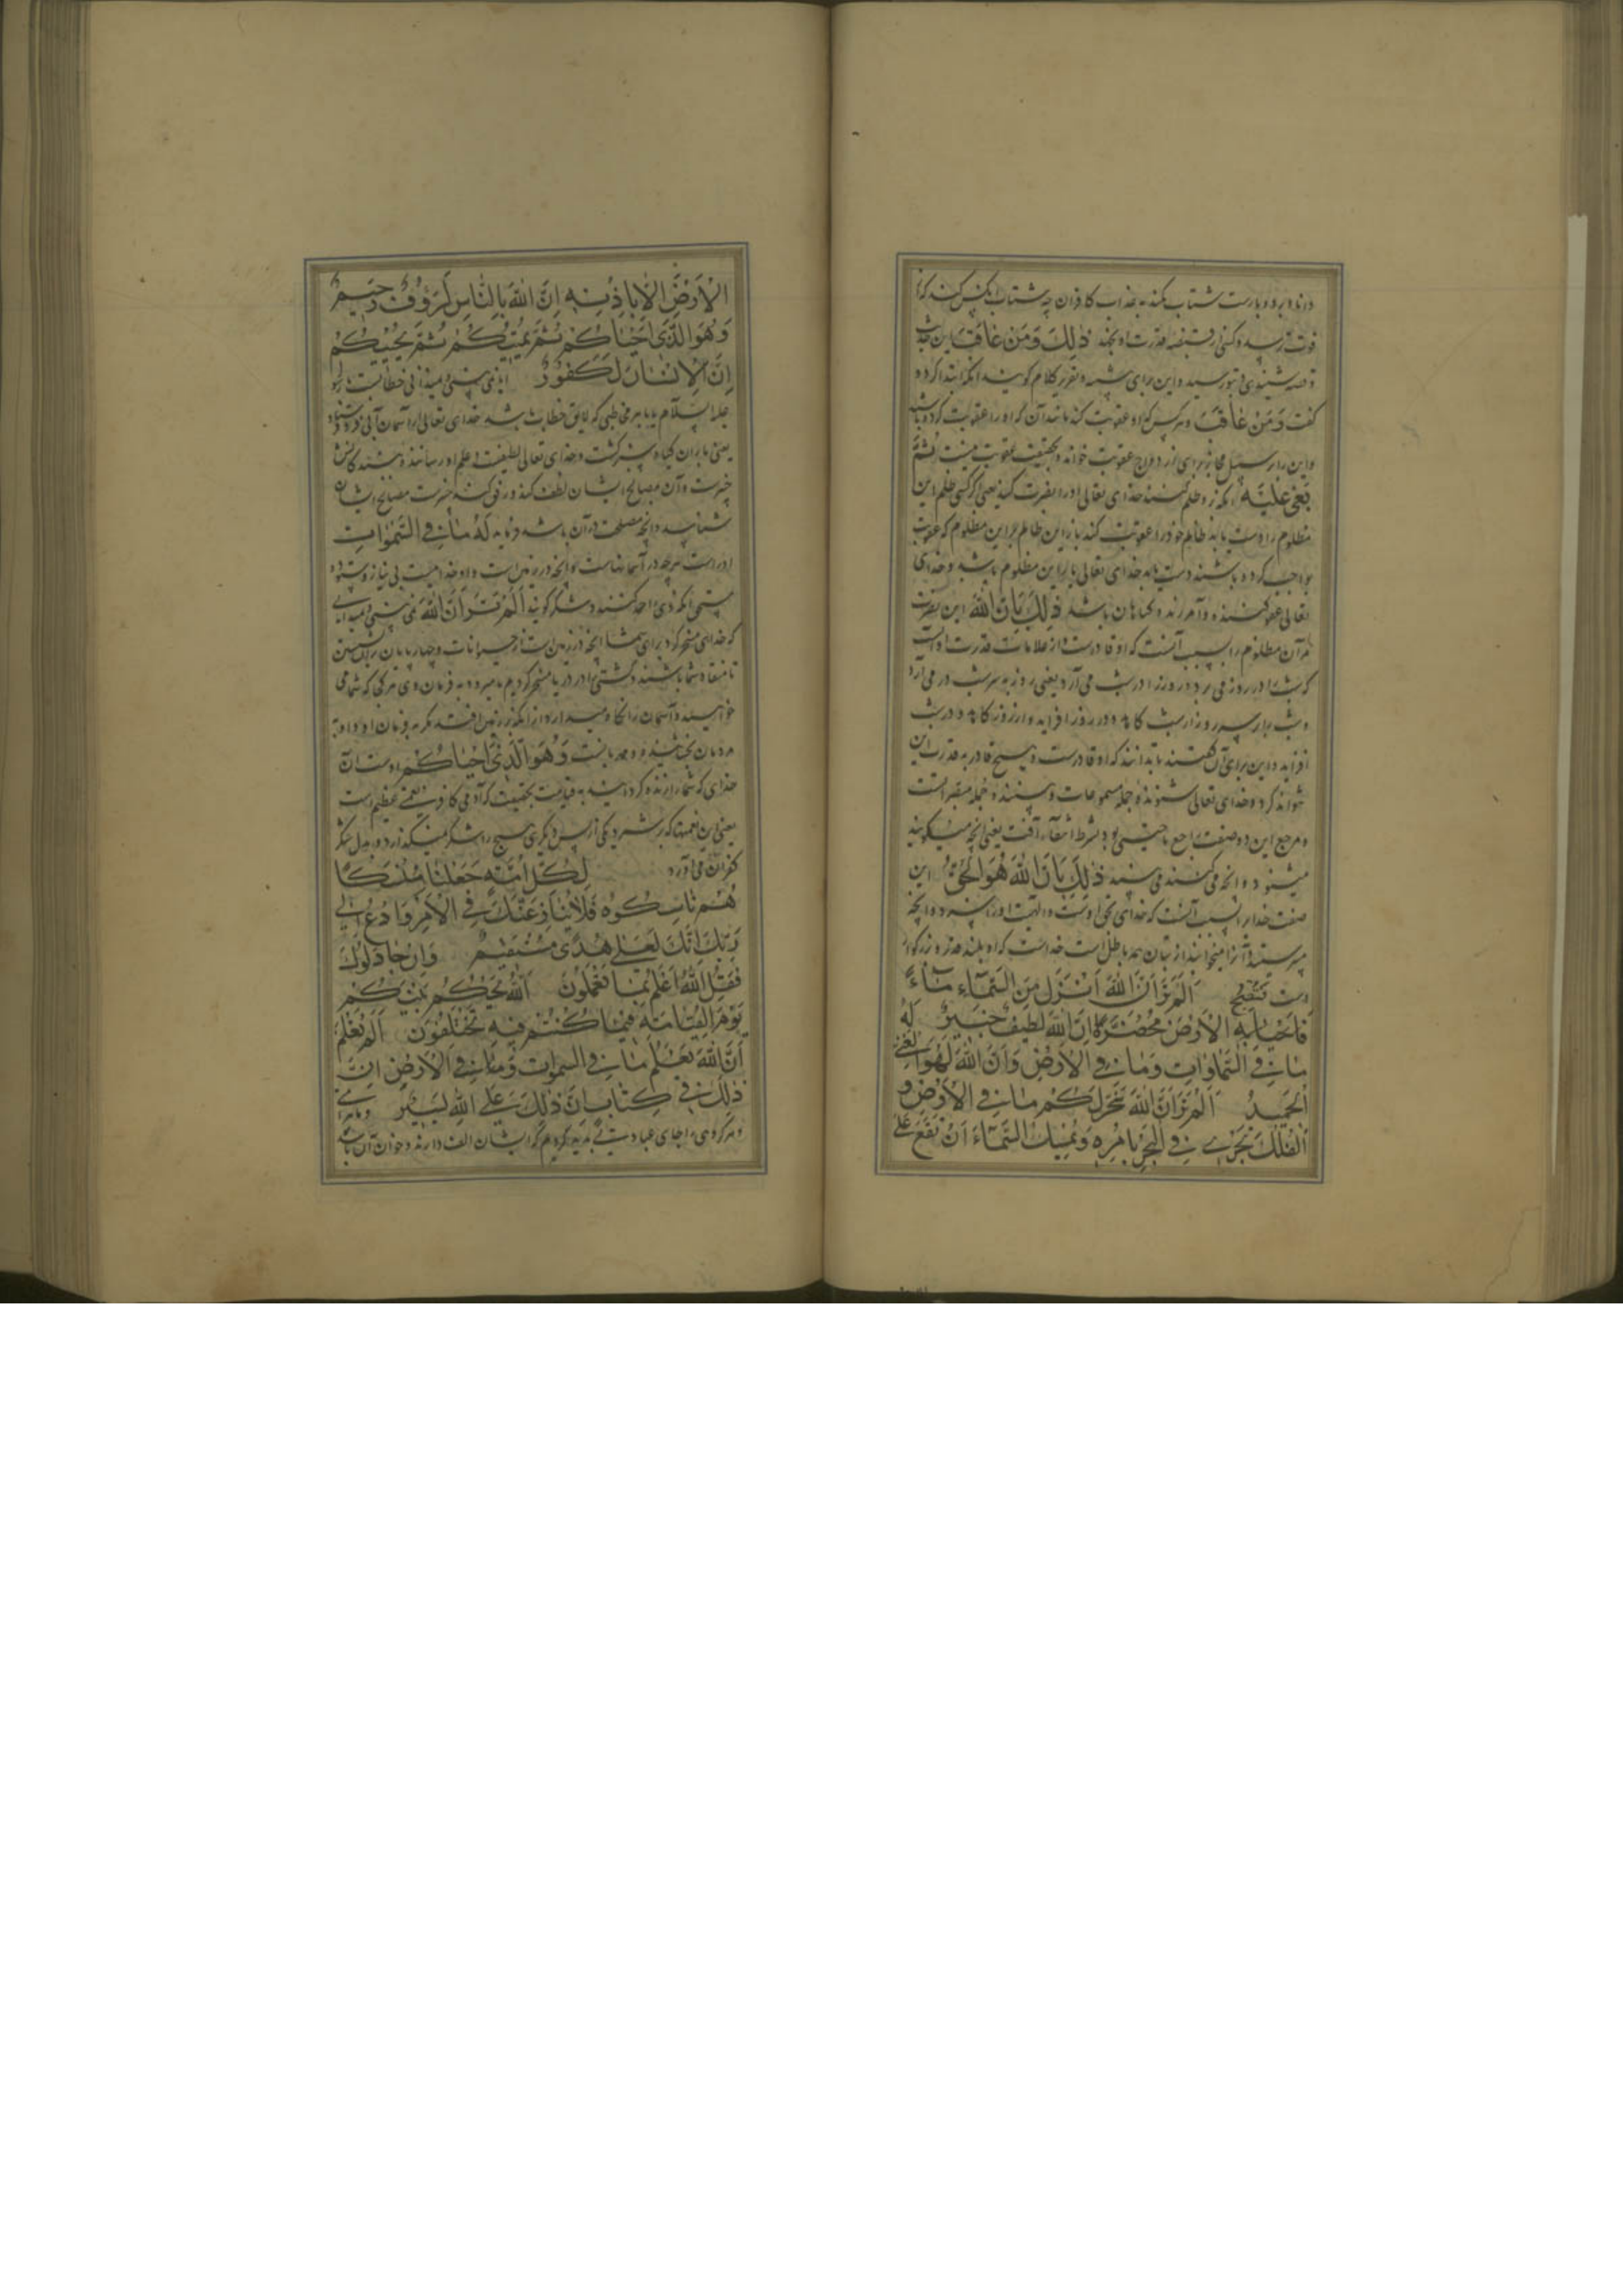 دانا و بردبارست شتاب نکند به عذاب کافران چه شتاب آنکس کند که از
فوت ترسد و کسی از قبضه قدرت او نجهد ذٰلِكَ وَمَنْ عَاقَبَ این
قصه شنیدی و بتو رسید و این برای تقریر کلام گویند آنکه ابتدا کرد و
گفت وَمَنْ عَاقَبَ و هر کس که او عقوبت کند مانند آن که او را عقوبت کرده باشند
و این را بر سبیل مجاز برای ازدواج عقوبت خواند و بحقیقت عقوبت نیست ثُمَّ
بُغِيَ عَلَيْهِ آنگه برو ظلم کنند خدای تعالی او را نصرت کند یعنی اگر کسی ظلم این
مظلوم را دست یابد ظالم خود را عقوبت کند باز این ظالم بر این مظلوم که عقوبت
بواجب کرده باشند دست یابد خدای تعالی یار این مظلوم باشد و خدای
تعالی عفو کننده و آمرزنده گناهان باشد ذٰلِكَ بِاَنَّ اللّٰهَ این نصرت
مر آن مظلوم را بسبب آنست که او قادرست و از علامات قدرت او آنست
که شب را در روز می برد و روز را در شب می آرد یعنی روز به سر شب در می آرد
و شب بار سر روز از شب کاهد و در روز افزاید و از روز کاهد و در شب
افزاید و این برای آن گفتند تا بدانند که او قادرست و هیچ قادر به قدرت این
نتواند کرد و خدای تعالی شنونده جمله مسموعات و بیننده جمله مبصراتست
و مرجع این دو صفت راجع با حیی بود بشرط انتفاء آفت یعنی آنچه میگویند
میشنود و آنچه می کنند می بیند ذٰلِكَ بِاَنَّ اللّٰهَ هُوَ الْحَقُّ این
صفت خدا را بسبب آنست که خدای بحق اوست و الهیت او را سزد و آنچه
می پرستند و آنرا میخوانند از بتان همه باطل است خداست که او بلند قدر و بزرگوار
است اَلَمْ تَرَ اَنَّ اللّٰهَ اَنْزَلَ مِنَ السَّمَآءِ مَآءً
فَتُصْبِحُ الْاَرْضُ مُخْضَرَّةً اِنَّ اللّٰهَ لَطِيفٌ خَبِيرٌ لَهُ
مَا فِي السَّمَاوَاتِ وَمَا فِي الْاَرْضِ وَاِنَّ اللّٰهَ لَهُوَ الْغَنِيُّ
الْحَمِيدُ اَلَمْ تَرَ اَنَّ اللّٰهَ سَخَّرَ لَكُمْ مَا فِي الْاَرْضِ وَ
الْفُلْكَ تَجْرِي فِي الْبَحْرِ بِاَمْرِهِ وَيُمْسِكُ السَّمَآءَ اَنْ تَقَعَ عَلَى
الْاَرْضِ اِلَّا بِاِذْنِهِ اِنَّ اللّٰهَ بِالنَّاسِ لَرَؤُفٌ رَحِيمٌ
وَهُوَ الَّذِي اَحْيَاكُمْ ثُمَّ يُمِيتُكُمْ ثُمَّ يُحْيِيكُمْ
اِنَّ الْاِنْسَانَ لَكَفُورٌ ایا نمی بینی و نمیدانی خطابست با رسول
علیه السلام یا با هر مخاطبی که لایق خطاب باشد خدای تعالی از آسمان آبی فرو فرستاد
یعنی باران گیاه سبز گشت و خدای تعالی لطیفست و علم او رسانند
خبیرست و آن مصالح ایشان لطف کند و رفق کند خبیرست مصالح ایشان
شناسد و آنچه مصلحت در آن باشد فرماید لَهُ مَا فِي السَّمَوَاتِ
او راست هرچه در آسمانهاست و آنچه در زمین است و او خدائیست بی نیاز و ستوده
مستحق آنکه وی را حمد کنند و شکر گویند اَلَمْ تَرَ اَنَّ اللّٰهَ نمی بینی و نمیدانی
که خدای مسخر کرد برای شما آنچه در زمین است از حیوانات و چهارپایان
تا منقاد شما باشند و کشتی را در دریا مسخر کردیم تا میرود به فرمان وی هر کجا که شما می
خواهید و آسمان را نگاه میدارد از آنکه بر زمین افتد مگر به فرمان او و او به
مردمان بخشاینده و مهربانست وَهُوَ الَّذِي اَحْيَاكُمْ اوست آن
خدای که شما را زنده گردانید به قیامت بحقیقت که آدمی کافر نعمتی عظیم است
یعنی این نعمتها که برشمرد یکی از پس دیگری هیچ را شکر نمیگذارد و بدل شکر
کفران می آورد لِكُلِّ اُمَّةٍ جَعَلْنَا مَنْسَكًا
هُمْ نَاسِكُوهُ فَلَا يُنَازِعُنَّكَ فِي الْاَمْرِ وَادْعُ اِلٰى
رَبِّكَ اِنَّكَ لَعَلٰى هُدًى مُسْتَقِيمٍ وَاِنْ جَادَلُوكَ
فَقُلِ اللّٰهُ اَعْلَمُ بِمَا تَعْمَلُونَ اَللّٰهُ يَحْكُمُ بَيْنَكُمْ
يَوْمَ الْقِيَامَةِ فِيمَا كُنْتُمْ فِيهِ تَخْتَلِفُونَ اَلَمْ تَعْلَمْ
اَنَّ اللّٰهَ يَعْلَمُ مَا فِي السموات وَمَا فِي الْاَرْضِ اِنَّ
ذٰلِكَ فِي كِتَابٍ اِنَّ ذٰلِكَ عَلَى اللّٰهِ يَسِيرٌ و ما برای
هر گروهی را جای عبادت پدید کردیم که ایشان الف دارند و خوان آن باشد